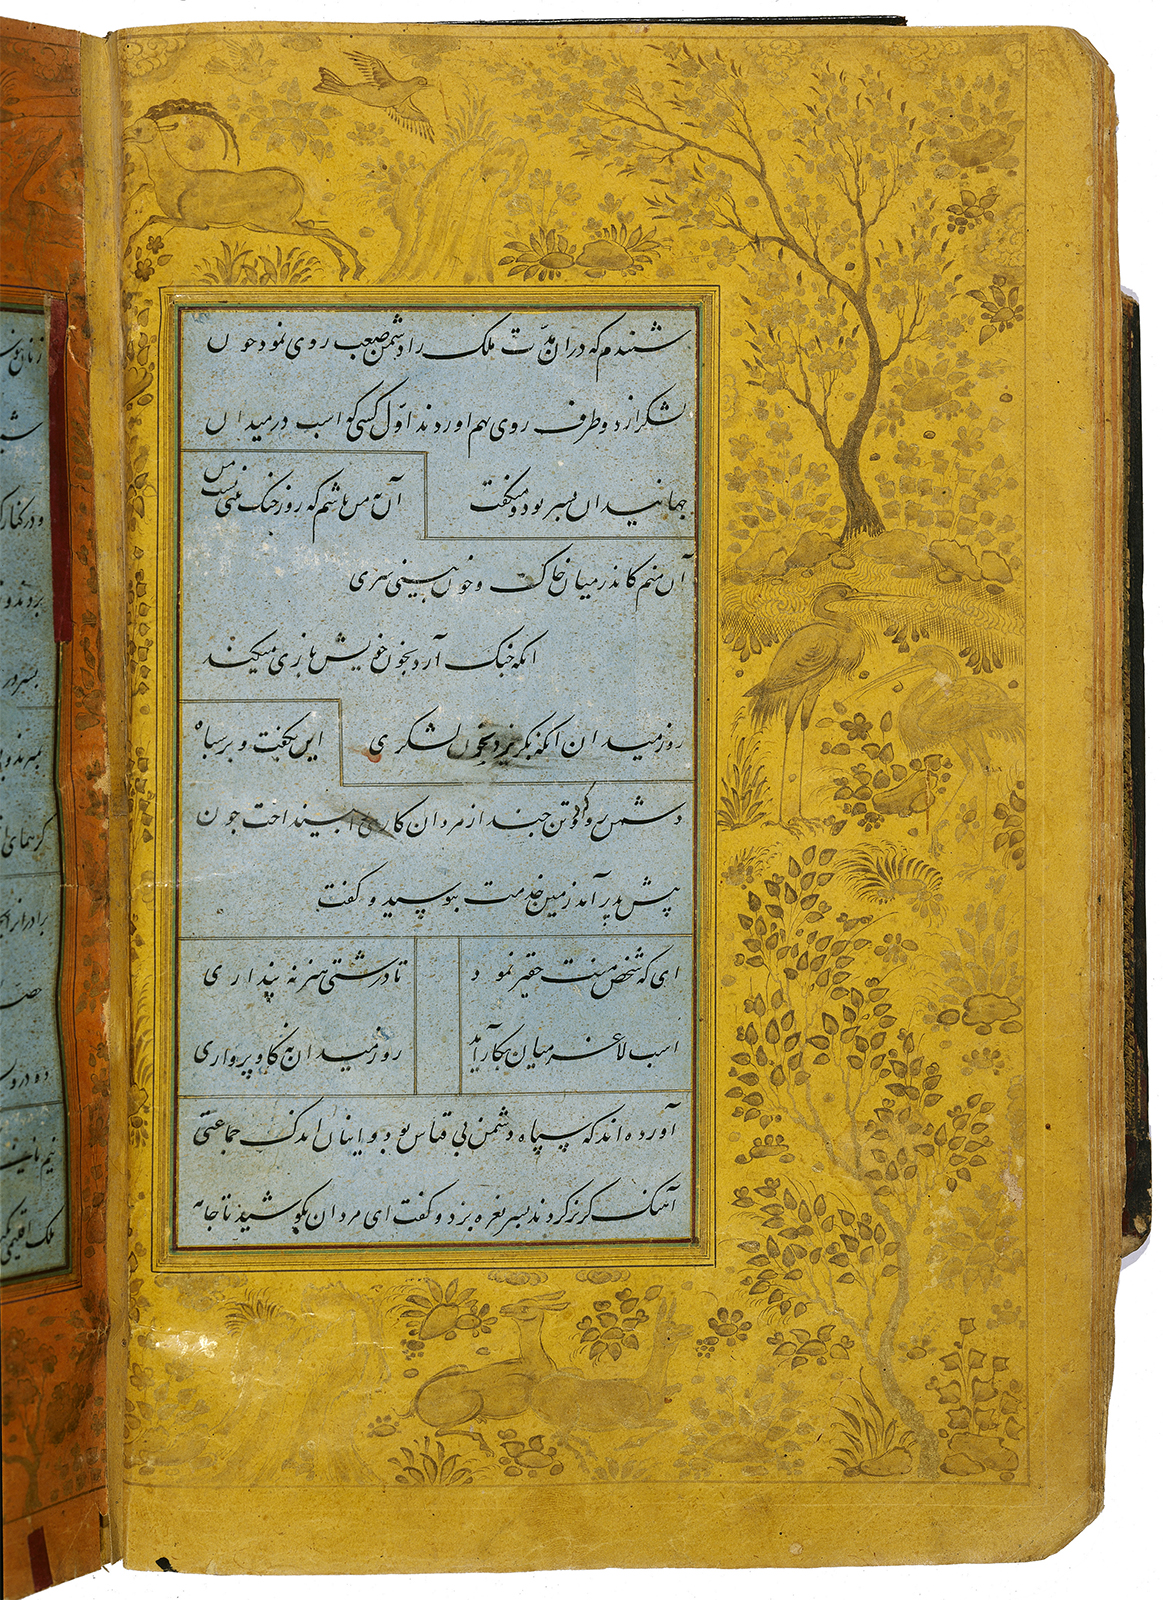 شنیدم که دران مدّت ملک را دشمن صعب روی نمود چون
لشکر از دو طرف روی بهم اوردند اوّل کسی کو اسب در میدان
جهانیدان پسر بود و میکفت
آن نه من باشم که روز جنک بینی پشت من
آن منم کاندر میان خاک و خون بینی سری
انکه جنک آرد بخون خویش بازی میکند
روز میدان انکه بکریزد بخون لشکری
این بکفت و بر سپاه
دشمن زد و تنی چند از مردان کاری بینداخت جون
پیش پدر آمد زمین خدمت ببوسید و کفت
ای که شخص منت حقیر نمود
تا درشتی هنر نه پنداری
اسب لاغر میان بکار آید
روز میدان نه کاو پرواری
آورده اند که سپاه دشمن بی قیاس بود و اینان اندک جماعتی
آهنک کریز کردند پسر نعره بزد و کفت ای مردان بکوشید تا جامه